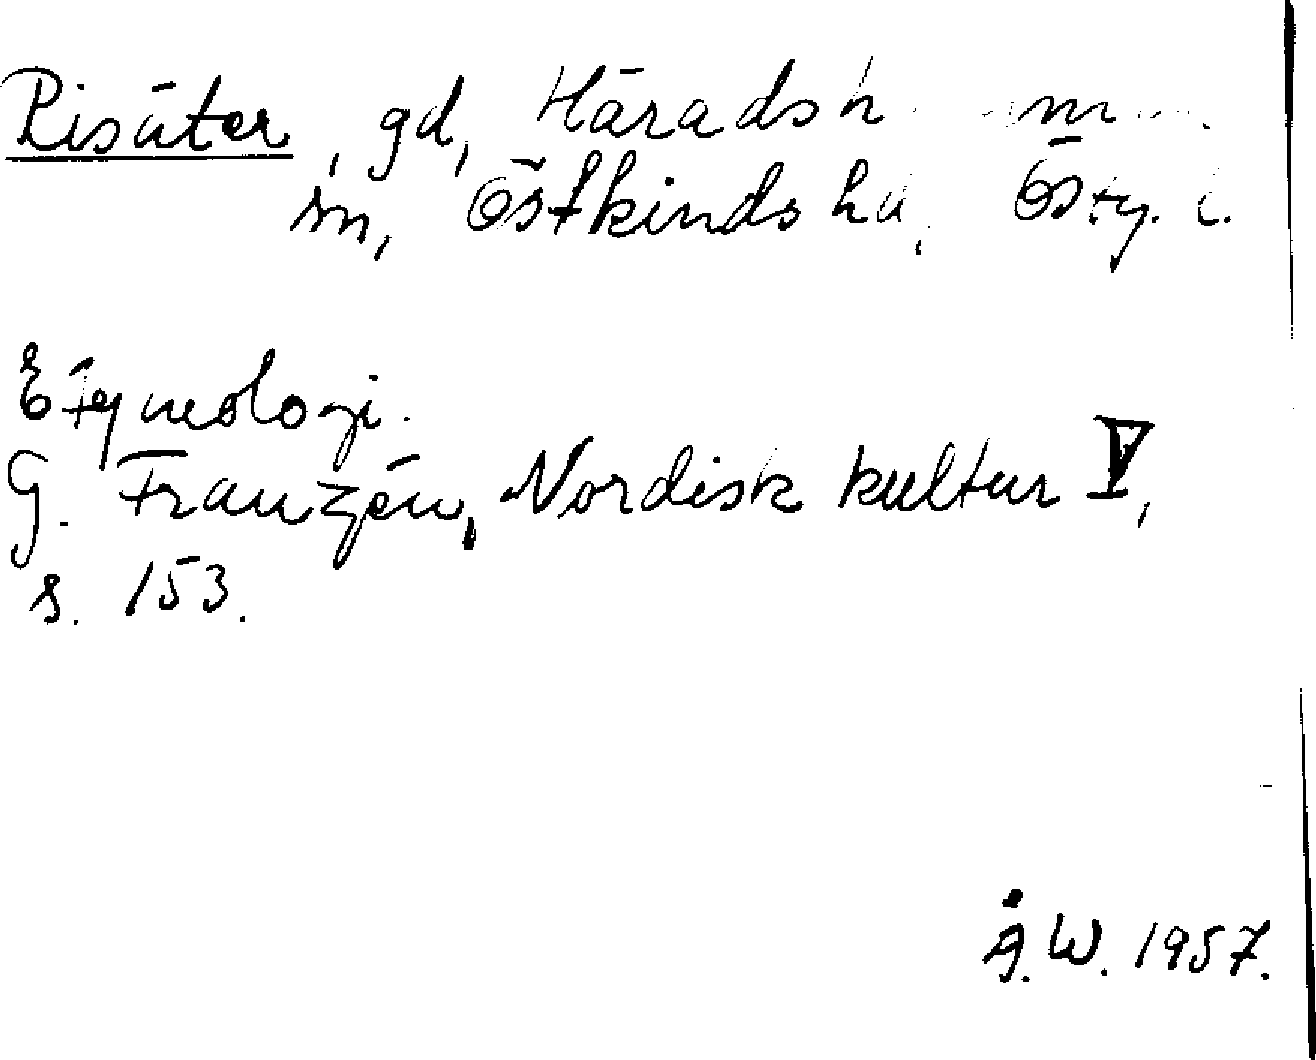 Risäter, gd, Häradsh
sn, Östkinds hd, Östg. l.
Etymologi.
G. Franzén, Nordisk kultur V,
s. 153.
Å. W. 1957.